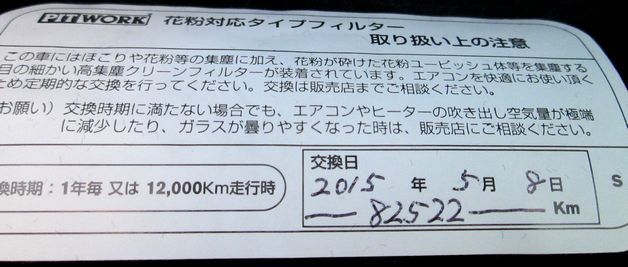 PITWORK 花粉対応タイプフィルター
取り扱い上の注意
この車にはほこりや花粉等の集塵に加え、花粉が砕けた花粉ユービッシュ体等を集塵する
目の細かい高集塵クリーンフィルターが装着されています。エアコンを快適にお使い頂く
ため定期的な交換を行ってください。交換は販売店までご相談ください。
お願い) 交換時期に満たない場合でも、エアコンやヒーターの吹き出し空気量が極端
に減少したり、ガラスが曇りやすくなった時は、販売店にご相談ください。
換時期:1年毎 又は 12,000Km走行時
交換日
2015 年 5月 8日
82522 Km
S